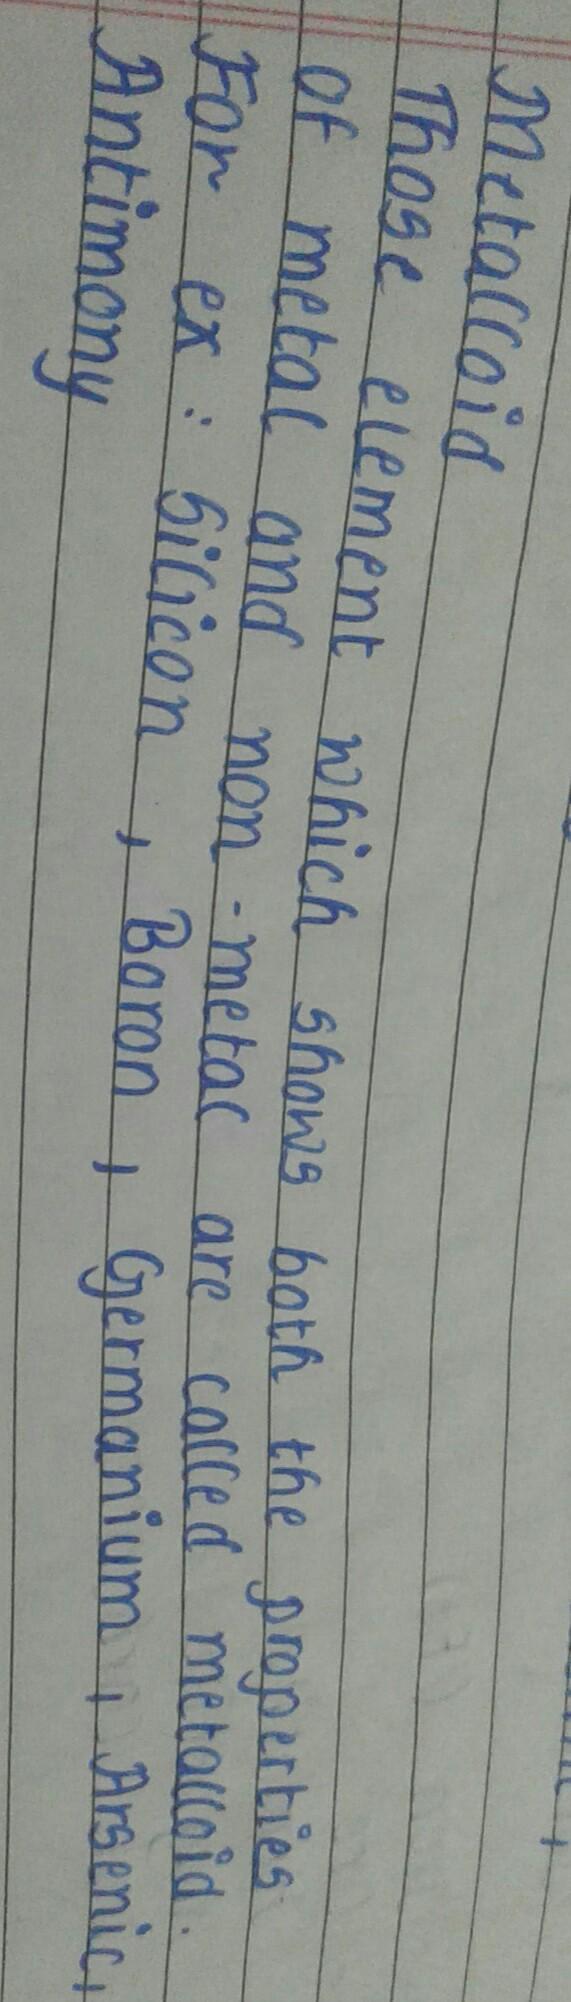 Metalloid
Those element which shows both the properties
of metal and non-metal are called metalloid.
For ex : Silicon , Boron , Germanium , Arsenic,
Antimony